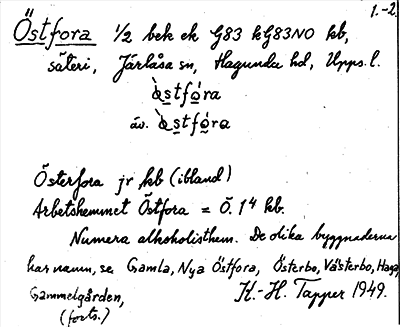 1.-2.
Östfora 1/2 bek ek G83 kG83NO kb,
säteri, Järlåsa sn, Hagunda hd, Upps. l.
òstfóra
äv. òstfóra
Österfora jr kb (ibland)
Arbetshemmet Östfora = Ö. 1⁴ kb.
Numera alkoholisthem. De olika byggnaderna
har namn, se Gamla, Nya Östfora, Österbo, Västerbo, Haga,
Gammelgården, K.-H. Tapper 1949.
(forts.)